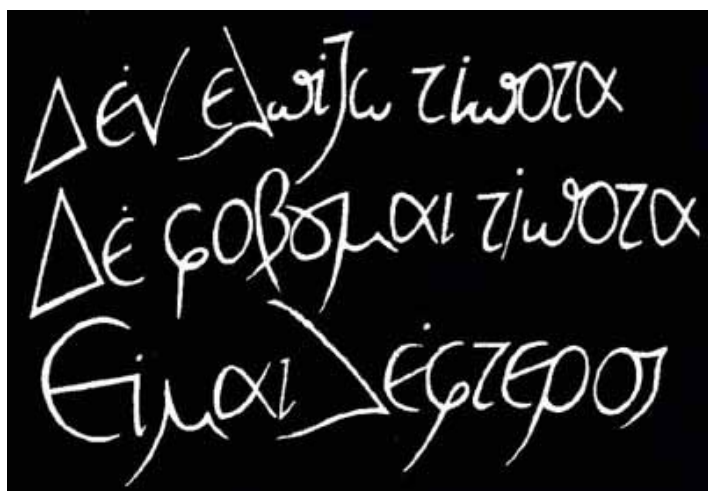 Δέν ελπίζω τίποτα
Δέ φοβȣμαι τίποτα
Είμαι λέφτερος